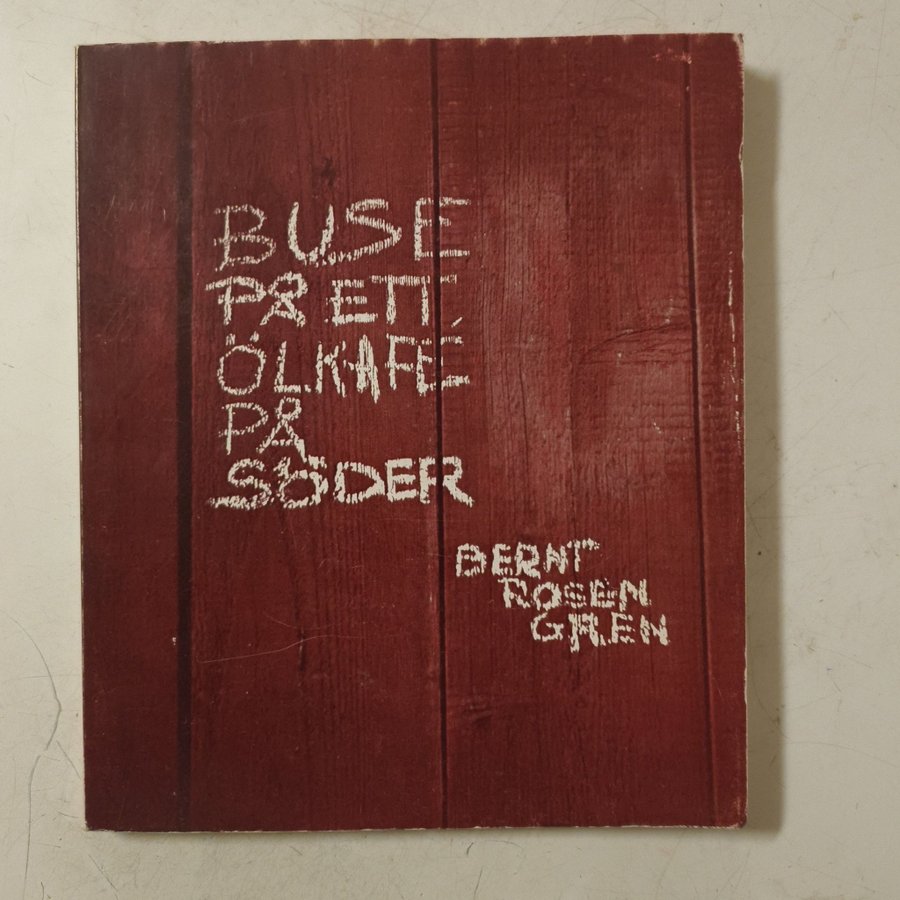 BUSE
PÅ ETT
ÖLKAFÉ
PÅ
SÖDER
BERNT
ROSEN
GREN